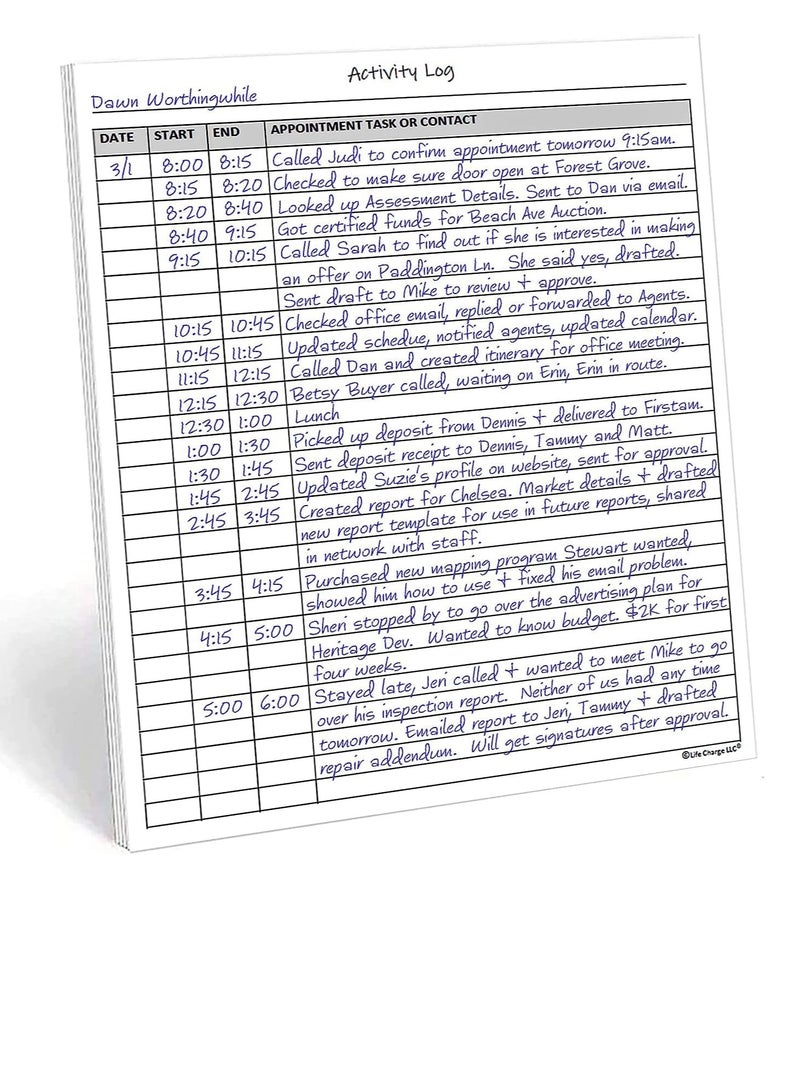 Activity Log
Dawn Worthingwhile
DATE START END APPOINTMENT TASK OR CONTACT
3/1 8:00 8:15 Called Judi to confirm appointment tomorrow 9:15am.
8:15 8:20 Checked to make sure door open at Forest Grove.
8:20 8:40 Looked up Assessment Details. Sent to Dan via email.
8:40 9:15 Got certified funds for Beach Ave Auction.
9:15 10:15 Called Sarah to find out if she is interested in making
an offer on Paddington Ln. She said yes, drafted.
Sent draft to Mike to review + approve.
10:15 10:45 Checked office email, replied or forwarded to Agents.
10:45 11:15 Updated schedue, notified agents, updated calendar.
11:15 12:15 Called Dan and created itinerary for office meeting.
12:15 12:30 Betsy Buyer called, waiting on Erin, Erin in route.
12:30 1:00 Lunch
1:00 1:30 Picked up deposit from Dennis + delivered to Firstam.
1:30 1:45 Sent deposit receipt to Dennis, Tammy and Matt.
1:45 2:45 Updated Suzie's profile on website, sent for approval.
2:45 3:45 Created report for Chelsea. Market details + drafted
new report template for use in future reports, shared
in network with staff.
3:45 4:15 Purchased new mapping program Stewart wanted,
showed him how to use + fixed his email problem.
4:15 5:00 Sheri stopped by to go over the advertising plan for
Heritage Dev. Wanted to know budget. $2K for first
four weeks.
5:00 6:00 Stayed late, Jeri called + wanted to meet Mike to go
over his inspection report. Neither of us had any time
tomorrow. Emailed report to Jeri, Tammy + drafted
repair addendum. Will get signatures after approval.
©Life Charge LLC®